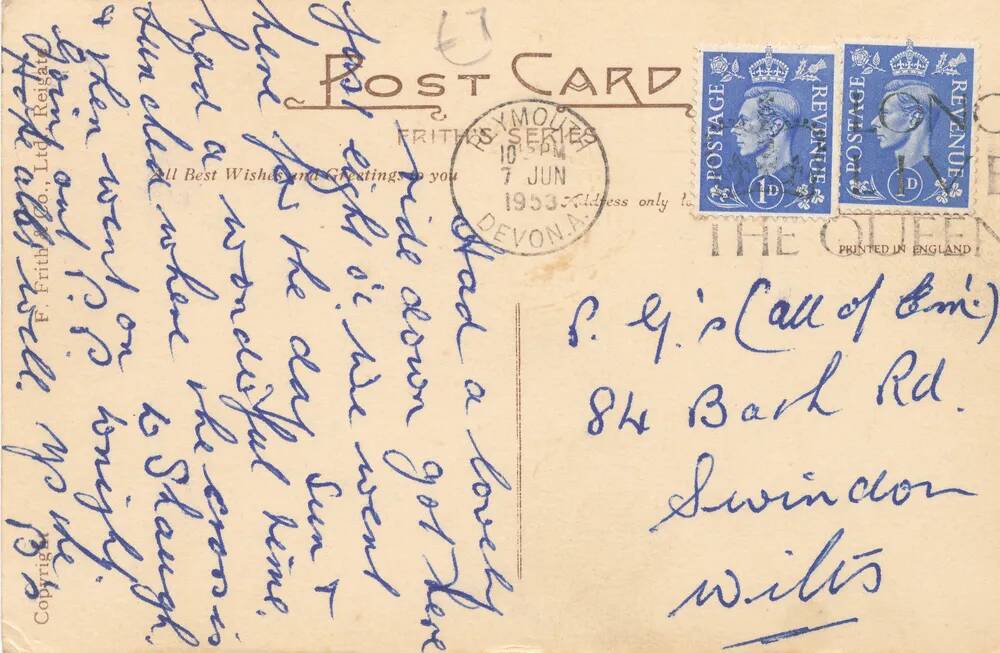 67
POST CARD
FRITH'S SERIES
All Best Wishes and Greetings to you
Address only
PRINTED IN ENGLAND
PLYMOUTH
10 15 PM
7 JUN
1953
DEVON.A.
POSTAGE REVENUE
1D
POSTAGE REVENUE
1D
LONG
LIVE
THE QUEEN
Had a lovely
ride down got here
just eight o'c We went
here for the day Sun +
had a wonderful time.
Lunched where the cross is
& then went on to Shaugh.
Going out P.P. tonight.
Hope all's well. Yrs the
B's
P. G's (all of Em')
84 Bath Rd.
Swindon
Wilts
Copyright F. Frith & Co., Ltd. Reigate